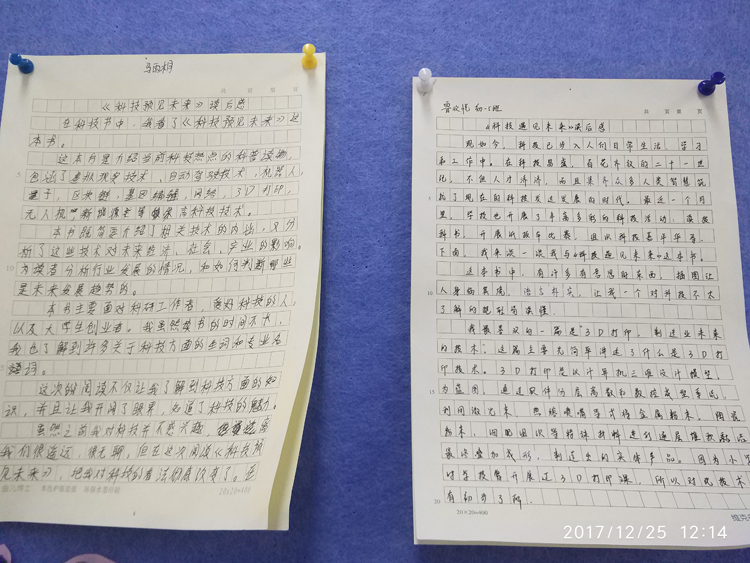 《科技预见未来》读后感
在科技书中，我看了《科技预见未来》这
本书。
这本书是介绍当前科技热点的科普读物，
包涵了虚拟现实技术，自动驾驶技术，机器人，
量子，区块链，基因 网络，3D打印，
无人机 科技技术。
本书既简要介绍了相关技术的内涵，又分
析了这些技术对未来经济、社会、产业的影响。
为读者分析行业发展的情况，和如何判断哪些
是未来发展趋势的。
本书主要面对科研工作者，爱好科技的人，
以及大学生创业者。我虽然读书的时间不长，
我也了解到许多关于科技方面的 和专业名
词。
这次的阅读不仅让我了解到科技方面的知
识，并且让我开阔了眼界，知道了科技的魅力。
虽然之前我对科技并不感兴趣，
我们很遥远，很无聊，但在这次阅读《科技预
见未来》，把我对科技的看法彻底没有了。
20×20=400
初一5班
《科技遇见未来》读后感
现如今，科技已步入人们日常生活、学习
和工作中。在科技昌盛，百花齐放的二十一世
纪，不但人才济济，而且集齐众多人类智慧筑
起了现在的科技发达发展的时代。最近一个月
里，学校也开展了丰富多彩的科技活动，读科
科书，开展纸板车比赛，组织科技嘉年华等，
下面，我来谈一谈我与《科技遇见未来》这本书。
这本书中，有许多有意思的东西，插图让
人身临其境，语言朴实，让我一个对科技不太
了解的
我最喜欢的一篇是“3D打印，制造业未来
的技术”。这篇主要先简单讲述了什么是3D打
印技术。3D打印是以计算机三维设计模型
为蓝图，通过软件分层离散和数控成型系统，
利用激光束、热熔喷嘴等方式将金属粉末、陶瓷
粉末、细胞组织等特殊材料进行逐层堆积黏结，
最终叠加成形，制造出的实体产品。因为小学
时学校曾开展过3D打印课，所以对此技术
有初步了解。
20×20=400
2017/12/25 12:14